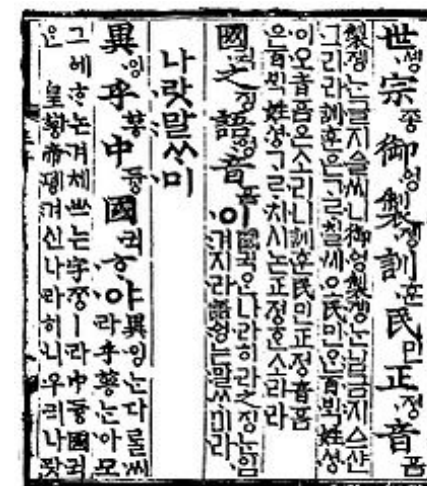 世솅宗종御ᅌᅥᆼ製졩訓훈民민正졍音ᅙᅳᆷ
製졩는글지ᅀᅳᆯ씨니御ᅌᅥᆼ製졩는님금지ᅀᅳ샨
그리라訓훈은ᄀᆞᄅᆞ칠씨오民민ᄋᆞᆫ百ᄇᆡᆨ姓셩
이오音ᅙᅳᆷ은소리니訓훈民민正졍音ᅙᅳᆷ
은百ᄇᆡᆨ姓셩ᄀᆞᄅᆞ치시논正졍ᄒᆞᆫ소리라
國귁之징語ᅌᅥᆼ音ᅙᅳᆷ이
國귁ᄋᆞᆫ나라히라之징ᄂᆞᆫ입
겨지라語ᅌᅥᆼ는말ᄊᆞ미라
나랏말ᄊᆞ미
異잉乎ᅘᅩᆼ中듀ᇰ國귁ᄒᆞ야
異잉ᄂᆞᆫ다ᄅᆞᆯ씨
라乎ᅘᅩᆼᄂᆞᆫ아모
그ᅌᅦᄒᆞ논겨체ᄡᅳ는字ᄍᆞᆼㅣ라中듀ᇰ國귁
ᄋᆞᆫ皇ᅘᅪᆼ帝뎽겨신나라히니우리나랏